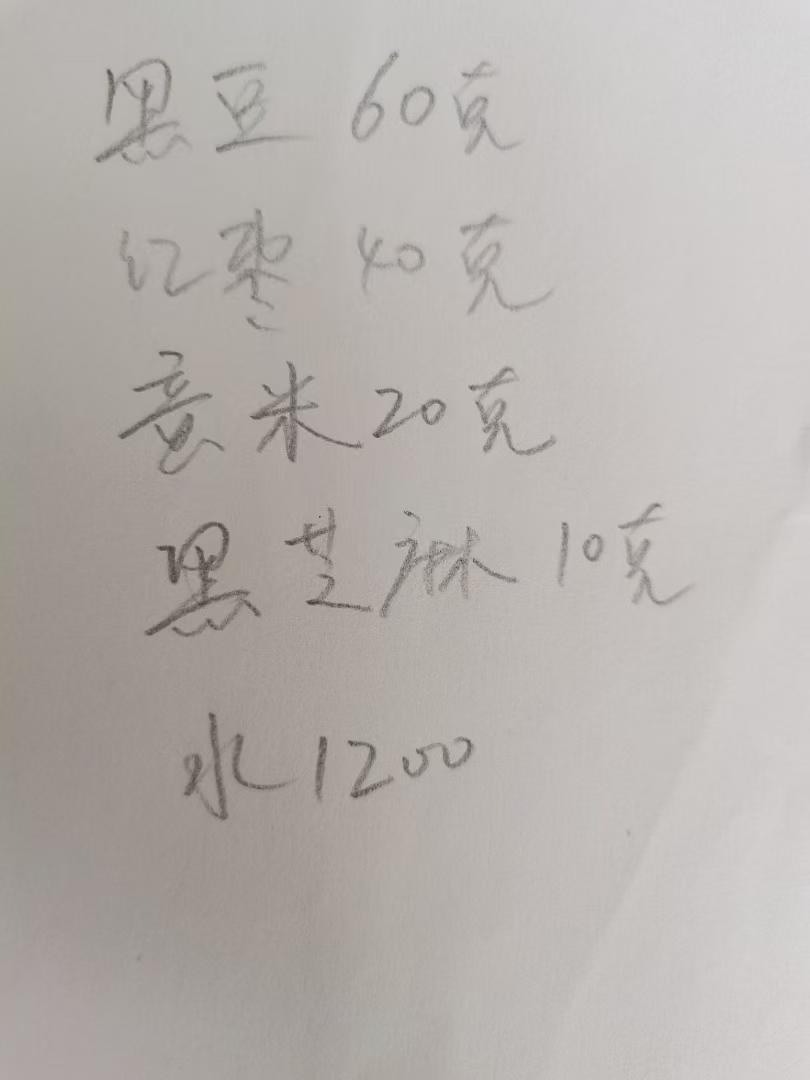 黑豆 60克
红枣 40克
薏米 20克
黑芝麻 10克
水 1200